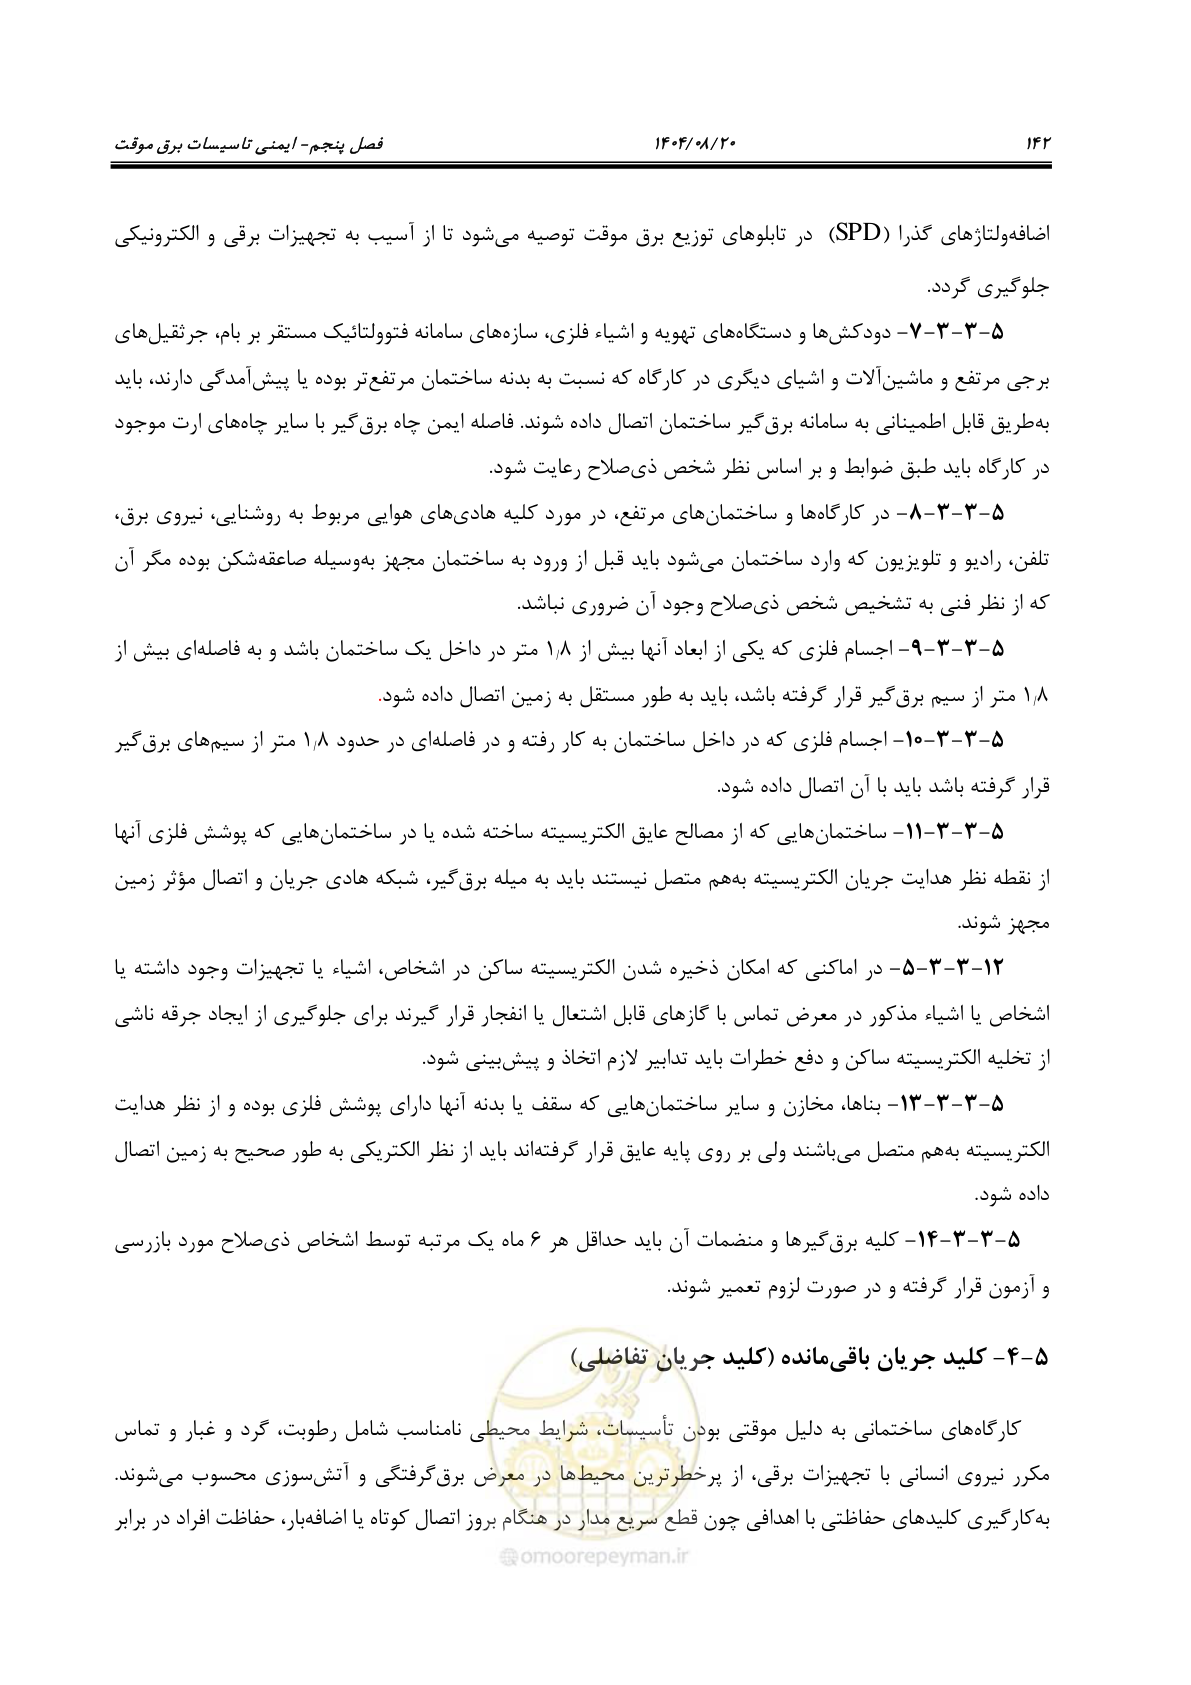 ۱۴۲ ۱۴۰۴/۰۸/۲۰ فصل پنجم- ایمنی تاسیسات برق موقت
اضافه‌ولتاژهای گذرا (SPD) در تابلوهای توزیع برق موقت توصیه می‌شود تا از آسیب به تجهیزات برقی و الکترونیکی
جلوگیری گردد.
۵-۳-۳-۷- دودکش‌ها و دستگاه‌های تهویه و اشیاء فلزی، سازه‌های سامانه فتوولتائیک مستقر بر بام، جرثقیل‌های
برجی مرتفع و ماشین‌آلات و اشیای دیگری در کارگاه که نسبت به بدنه ساختمان مرتفع‌تر بوده یا پیش‌آمدگی دارند، باید
به‌طریق قابل اطمینانی به سامانه برق‌گیر ساختمان اتصال داده شوند. فاصله ایمن چاه برق‌گیر با سایر چاه‌های ارت موجود
در کارگاه باید طبق ضوابط و بر اساس نظر شخص ذی‌صلاح رعایت شود.
۵-۳-۳-۸- در کارگاه‌ها و ساختمان‌های مرتفع، در مورد کلیه هادی‌های هوایی مربوط به روشنایی، نیروی برق،
تلفن، رادیو و تلویزیون که وارد ساختمان می‌شود باید قبل از ورود به ساختمان مجهز به‌وسیله صاعقه‌شکن بوده مگر آن
که از نظر فنی به تشخیص شخص ذی‌صلاح وجود آن ضروری نباشد.
۵-۳-۳-۹- اجسام فلزی که یکی از ابعاد آنها بیش از ۱٫۸ متر در داخل یک ساختمان باشد و به فاصله‌ای بیش از
۱٫۸ متر از سیم برق‌گیر قرار گرفته باشد، باید به طور مستقل به زمین اتصال داده شود.
۵-۳-۳-۱۰- اجسام فلزی که در داخل ساختمان به کار رفته و در فاصله‌ای در حدود ۱٫۸ متر از سیم‌های برق‌گیر
قرار گرفته باشد باید با آن اتصال داده شود.
۵-۳-۳-۱۱- ساختمان‌هایی که از مصالح عایق الکتریسیته ساخته شده یا در ساختمان‌هایی که پوشش فلزی آنها
از نقطه نظر هدایت جریان الکتریسیته به‌هم متصل نیستند باید به میله برق‌گیر، شبکه هادی جریان و اتصال مؤثر زمین
مجهز شوند.
۱۲-۳-۳-۵- در اماکنی که امکان ذخیره شدن الکتریسیته ساکن در اشخاص، اشیاء یا تجهیزات وجود داشته یا
اشخاص یا اشیاء مذکور در معرض تماس با گازهای قابل اشتعال یا انفجار قرار گیرند برای جلوگیری از ایجاد جرقه ناشی
از تخلیه الکتریسیته ساکن و دفع خطرات باید تدابیر لازم اتخاذ و پیش‌بینی شود.
۵-۳-۳-۱۳- بناها، مخازن و سایر ساختمان‌هایی که سقف یا بدنه آنها دارای پوشش فلزی بوده و از نظر هدایت
الکتریسیته به‌هم متصل می‌باشند ولی بر روی پایه عایق قرار گرفته‌اند باید از نظر الکتریکی به طور صحیح به زمین اتصال
داده شود.
۵-۳-۳-۱۴- کلیه برق‌گیرها و منضمات آن باید حداقل هر ۶ ماه یک مرتبه توسط اشخاص ذی‌صلاح مورد بازرسی
و آزمون قرار گرفته و در صورت لزوم تعمیر شوند.
۵-۴- کلید جریان باقی‌مانده (کلید جریان تفاضلی)
کارگاه‌های ساختمانی به دلیل موقتی بودن تأسیسات، شرایط محیطی نامناسب شامل رطوبت، گرد و غبار و تماس
مکرر نیروی انسانی با تجهیزات برقی، از پرخطرترین محیط‌ها در معرض برق‌گرفتگی و آتش‌سوزی محسوب می‌شوند.
به‌کارگیری کلیدهای حفاظتی با اهدافی چون قطع سریع مدار در هنگام بروز اتصال کوتاه یا اضافه‌بار، حفاظت افراد در برابر
امور پیمان
@omoorepeyman.ir